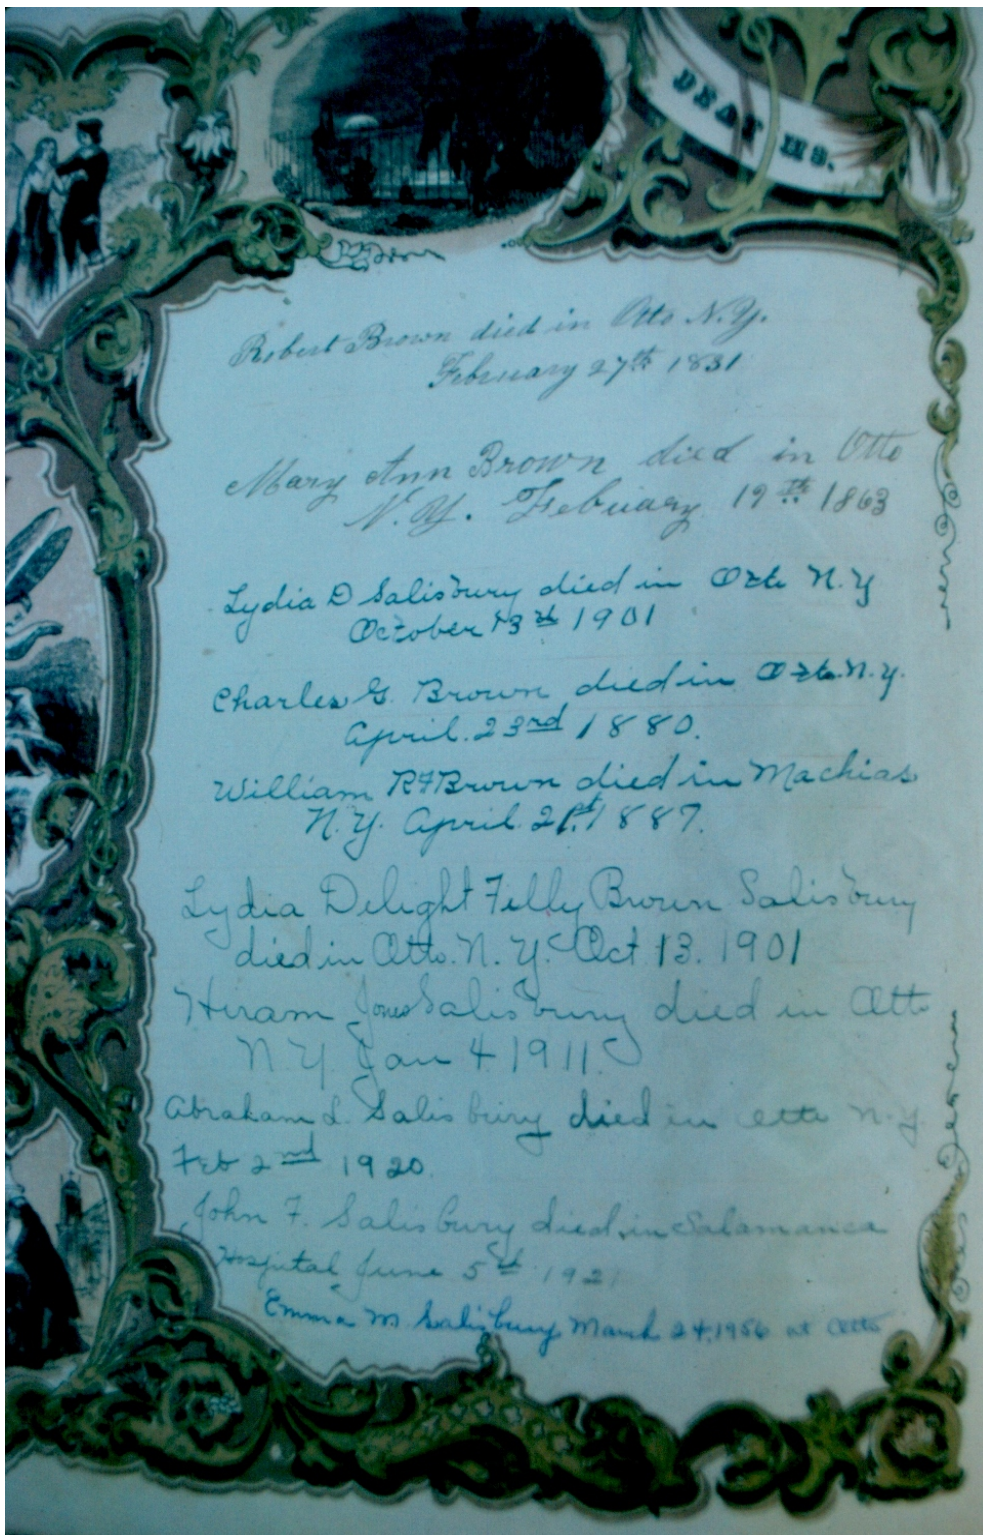 DEATHS.
Robert Brown died in Otto N.Y.
February 27th 1831
Mary Ann Brown died in Otto
N.Y. February 19th 1863
Lydia D Salisbury died in Otto N.Y
October 13th 1901
Charles G. Brown died in Otto N.Y.
April. 23rd 1880.
William R F Brown died in Machias
N.Y. April 21st 1887.
Lydia Delight Filly Brown Salisbury
died in Otto. N.Y. Oct 13. 1901
Hiram Jones Salisbury died in Otto
N.Y Jan 4 1911
Abraham L. Salisbury died in Otto N.Y.
Feb 2nd 1920.
John F. Salisbury died in Salamanca
Hospital June 5th 1921
Emma M. Salisbury March 24, 1956 at Otto